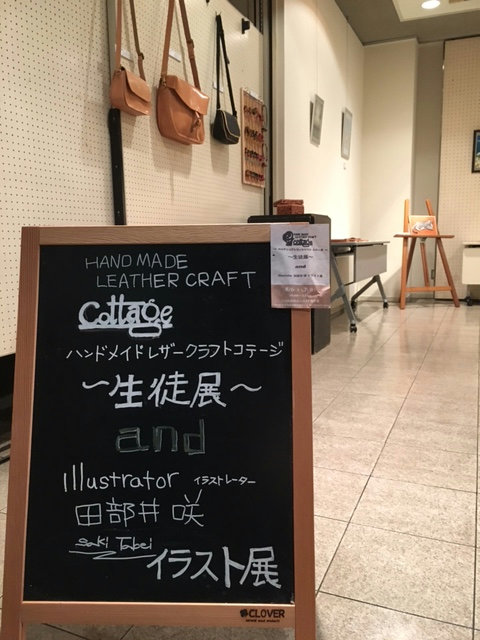 HAND MADE
LEATHER CRAFT
Cottage
ハンドメイドレザークラフトコテージ
〜生徒展〜
and
Illustrator イラストレーター
田部井 咲
Saki Tabei
イラスト展
CLOVER
Cottage
〜生徒展〜
and